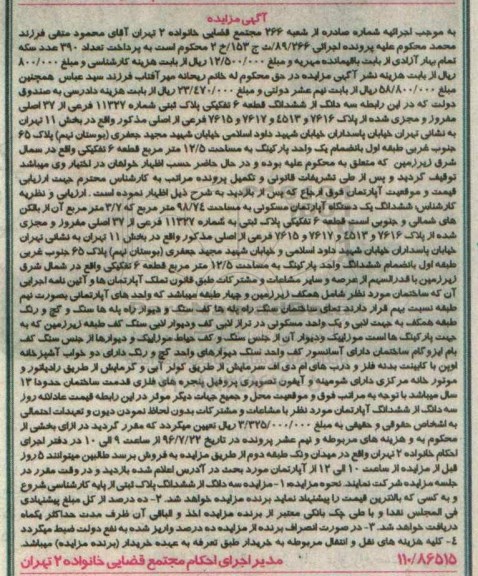 آگهی مزایده
به موجب اجرائیه شماره صادره از شعبه ۲۶۶ مجتمع قضایی خانواده ۲ تهران آقای محمود متقی فرزند
محمد محکوم علیه پرونده اجرائی ۸۹/۲۶۶/ت ج ۱۵۳/خ ۲ محکوم است به پرداخت تعداد ۳۹۰ عدد سکه
تمام بهار آزادی از بابت باقیمانده مهریه و مبلغ ۱۲/۵۰۰/۰۰۰ ریال از بابت هزینه کارشناسی و مبلغ ۸۰۰/۰۰۰
ریال از بابت هزینه نشر آگهی مزایده در حق محکوم له خانم ریحانه میرآفتاب فرزند سید عباس همچنین
مبلغ ۵۸/۸۰۰/۰۰۰ ریال از بابت نیم عشر دولتی و مبلغ ۲۳/۴۷۰/۰۰۰ ریال از بابت هزینه دادرسی به صندوق
دولت که در این رابطه سه دانگ از ششدانگ قطعه ۶ تفکیکی پلاک ثبتی شماره ۱۱۳۲۷ فرعی از ۳۷ اصلی
مفروز و مجزی شده از پلاک ۷۶۱۶ و ۴۵۱۳ و ۷۶۱۷ و ۷۶۱۵ فرعی از اصلی مذکور واقع در بخش ۱۱ تهران
به نشانی تهران خیابان پاسداران خیابان شهید داود اسلامی خیابان شهید مجید جعفری (بوستان نهم) پلاک ۶۵
جنوب غربی طبقه اول بانضمام یک واحد پارکینگ به مساحت ۱۲/۵ متر مربع قطعه ۶ تفکیکی واقع در سمال
شرق زیرزمین که متعلق به محکوم علیه بوده و در حال حاضر حسب اظهار خواهان در اختیار وی میباشد
توقیف گردید و پس از طی تشریفات قانونی و تکمیل پرونده مراتب به کارشناس محترم جهت ارزیابی
قیمت و موقعیت آپارتمان فوق ارجاع که پس از بازدید به شرح ذیل اظهار نموده است . ارزیابی و نظریه
کارشناس: ششدانگ یک دستگاه آپارتمان مسکونی به مساحت ۹۸/۷۴ متر مربع که ۳/۷ متر مربع آن از بالکن
های شمالی و جنوبی است قطعه ۶ تفکیکی پلاک ثبتی به شماره ۱۱۳۲۷ فرعی از ۳۷ اصلی مفروز و مجزی
شده از پلاک ۷۶۱۶ و ۴۵۱۳ و ۷۶۱۷ و ۷۶۱۵ فرعی از اصلی مذکور واقع در بخش ۱۱ تهران به نشانی تهران
خیابان پاسداران خیابان شهید داود اسلامی و خیابان شهید مجید جعفری (بوستان نهم) پلاک ۶۵ جنوب غربی
طبقه اول بانضمام ششدانگ واحد پارکینگ به مساحت ۱۲/۵ متر مربع قطعه ۶ تفکیکی واقع در شمال شرق
زیرزمین با قدرالسهم از عرصه و سایر مشاعات و مشترکات طبق قانون تملک آپارتمان ها و آئین نامه اجرایی
آن که ساختمان مورد نظر شامل همکف زیرزمین و چهار طبقه میباشد که واحد های آپارتمانی بصورت نهم
طبقه نسبت بهم قرار دارند نمای ساختمان سنگ راه پله ها کف سنگ و دیوار راه پله ها سنگ و گچ و رنگ
طبقه همکف به جهت لابی و یک واحد مسکونی در تراز لابی کف ودیوار لابی سنگ کف طبقه زیرزمین که به
جهت پارکینگ ها است موزاییک ودیوار آن از جنس سنگ و کف حیاط موزاییک و دیوارها از جنس سنگ کف
بام ایزوگام ساختمان دارای آسانسور کف واحد سنگ دیوارهای واحد گچ و رنگ دارای دو خواب آشپزخانه
اوپن با کابینت بدنه فلز و درب های ام دی اف سرمایش از طریق کولر آبی و گرمایش از طریق رادیاتور و
موتور خانه مرکزی دارای شومینه و آیفون تصویری پروفیل پنجره های فلزی قدمت ساختمان حدودا ۱۳
سال میباشد با توجه به مراتب فوق و موقعیت محل و جمیع جهات دیگر موثر در این رابطه قیمت عادلانه روز
سه دانگ از ششدانگ آپارتمان مورد نظر با مشاعات و مشترکات بدون لحاظ نمودن دیون و تعهدات احتمالی
به اشخاص حقوقی و حقیقی به مبلغ ۳/۳۲۵/۰۰۰/۰۰۰ ریال تعیین میگردد که مقرر گردید در ازای بخشی از
محکوم به و هزینه های مربوطه و نیم عشر پرونده در تاریخ ۹۶/۷/۲۲ از ساعت ۹ الی ۱۰ در دفتر اجرای
احکام خانواده ۲ تهران واقع در میدان ونک طبقه دوم از طریق مزایده به فروش برسد طالبین میتوانند ۵ روز
قبل از مزایده از ساعت ۱۰ الی ۱۲ از آپارتمان مورد بحث در آدرس اعلام شده بازدید و در وقت مقرر در
جلسه مزایده شرکت نمایند. نحوه مزایده: ۱- مزایده سه دانگ از ششدانگ پلاک ثبتی از پایه کارشناسی شروع
و به کسی که بالاترین قیمت را پیشنهاد نماید برنده مزایده خواهد شد. ۲- ده درصد از کل مبلغ پیشنهادی
فی المجلس نقدا و یا طی چک بانکی معتبر از برنده مزایده اخذ و الباقی آن ظرف مدت حداکثر یکماه
دریافت خواهد شد. ۳- در صورت انصراف برنده از مزایده ده درصد واریز شده به نفع دولت ضبط میگردد
۴- کلیه هزینه های نقل و انتقال مربوطه به خریدار طبق تعرفه به عهده خریدار (برنده مزایده) میباشد.
۱۱۰/۸۶۵۱۵ مدیر اجرای احکام مجتمع قضایی خانواده ۲ تهران